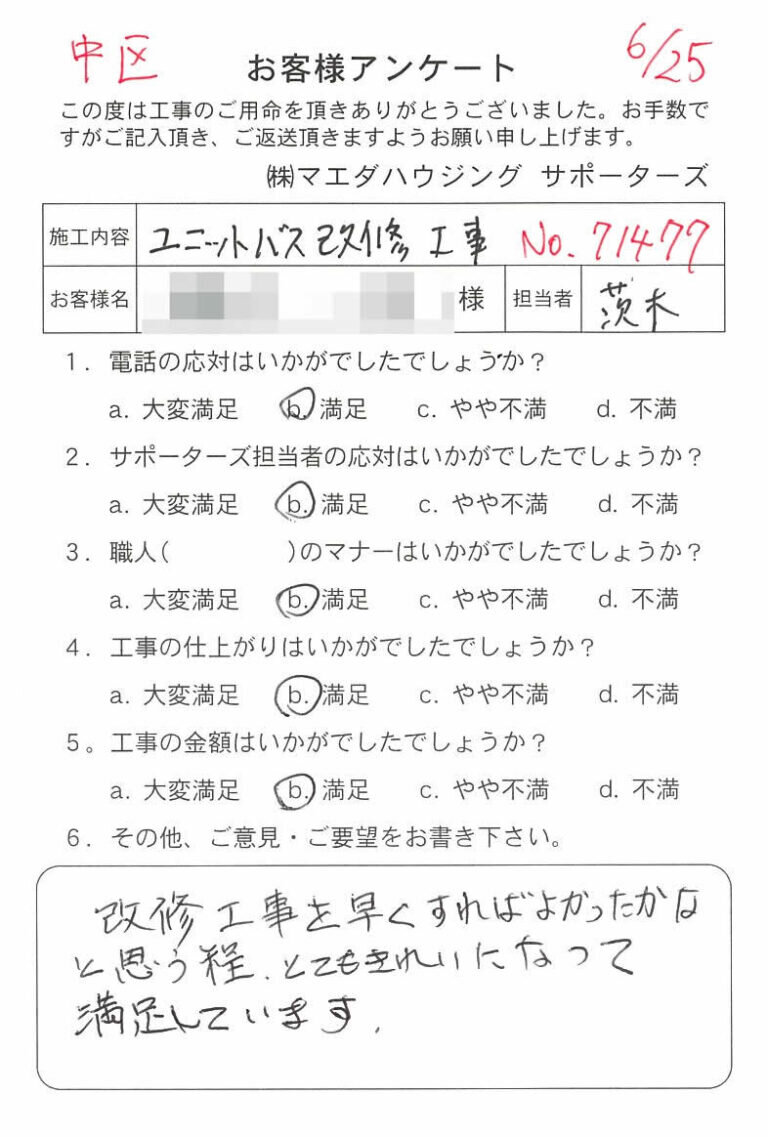 中区 お客様アンケート 6/25
この度は工事のご用命を頂きありがとうございました。お手数で
すがご記入頂き、ご返送頂きますようお願い申し上げます。
㈱マエダハウジング サポーターズ
施工内容 ユニットバス改修工事 No.71477
お客様名 様 担当者 茨木
1. 電話の応対はいかがでしたでしょうか?
a. 大変満足 b. 満足 c. やや不満 d. 不満
2. サポーターズ担当者の応対はいかがでしたでしょうか?
a. 大変満足 b. 満足 c. やや不満 d. 不満
3. 職人( )のマナーはいかがでしたでしょうか?
a. 大変満足 b. 満足 c. やや不満 d. 不満
4. 工事の仕上がりはいかがでしたでしょうか?
a. 大変満足 b. 満足 c. やや不満 d. 不満
5。工事の金額はいかがでしたでしょうか?
a. 大変満足 b. 満足 c. やや不満 d. 不満
6. その他、ご意見・ご要望をお書き下さい。
改修工事を早くすればよかったかな
と思う程、とてもきれいになって
満足しています。